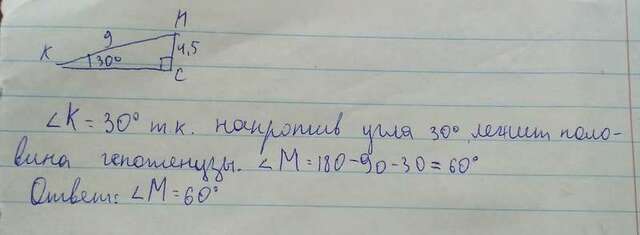 М
9
4,5
К
30°
С
∠K = 30° т.к. напротив угла 30° лежит поло-
вина гепотенузы. ∠M = 180 - 90 - 30 = 60°
Ответ: ∠M = 60°